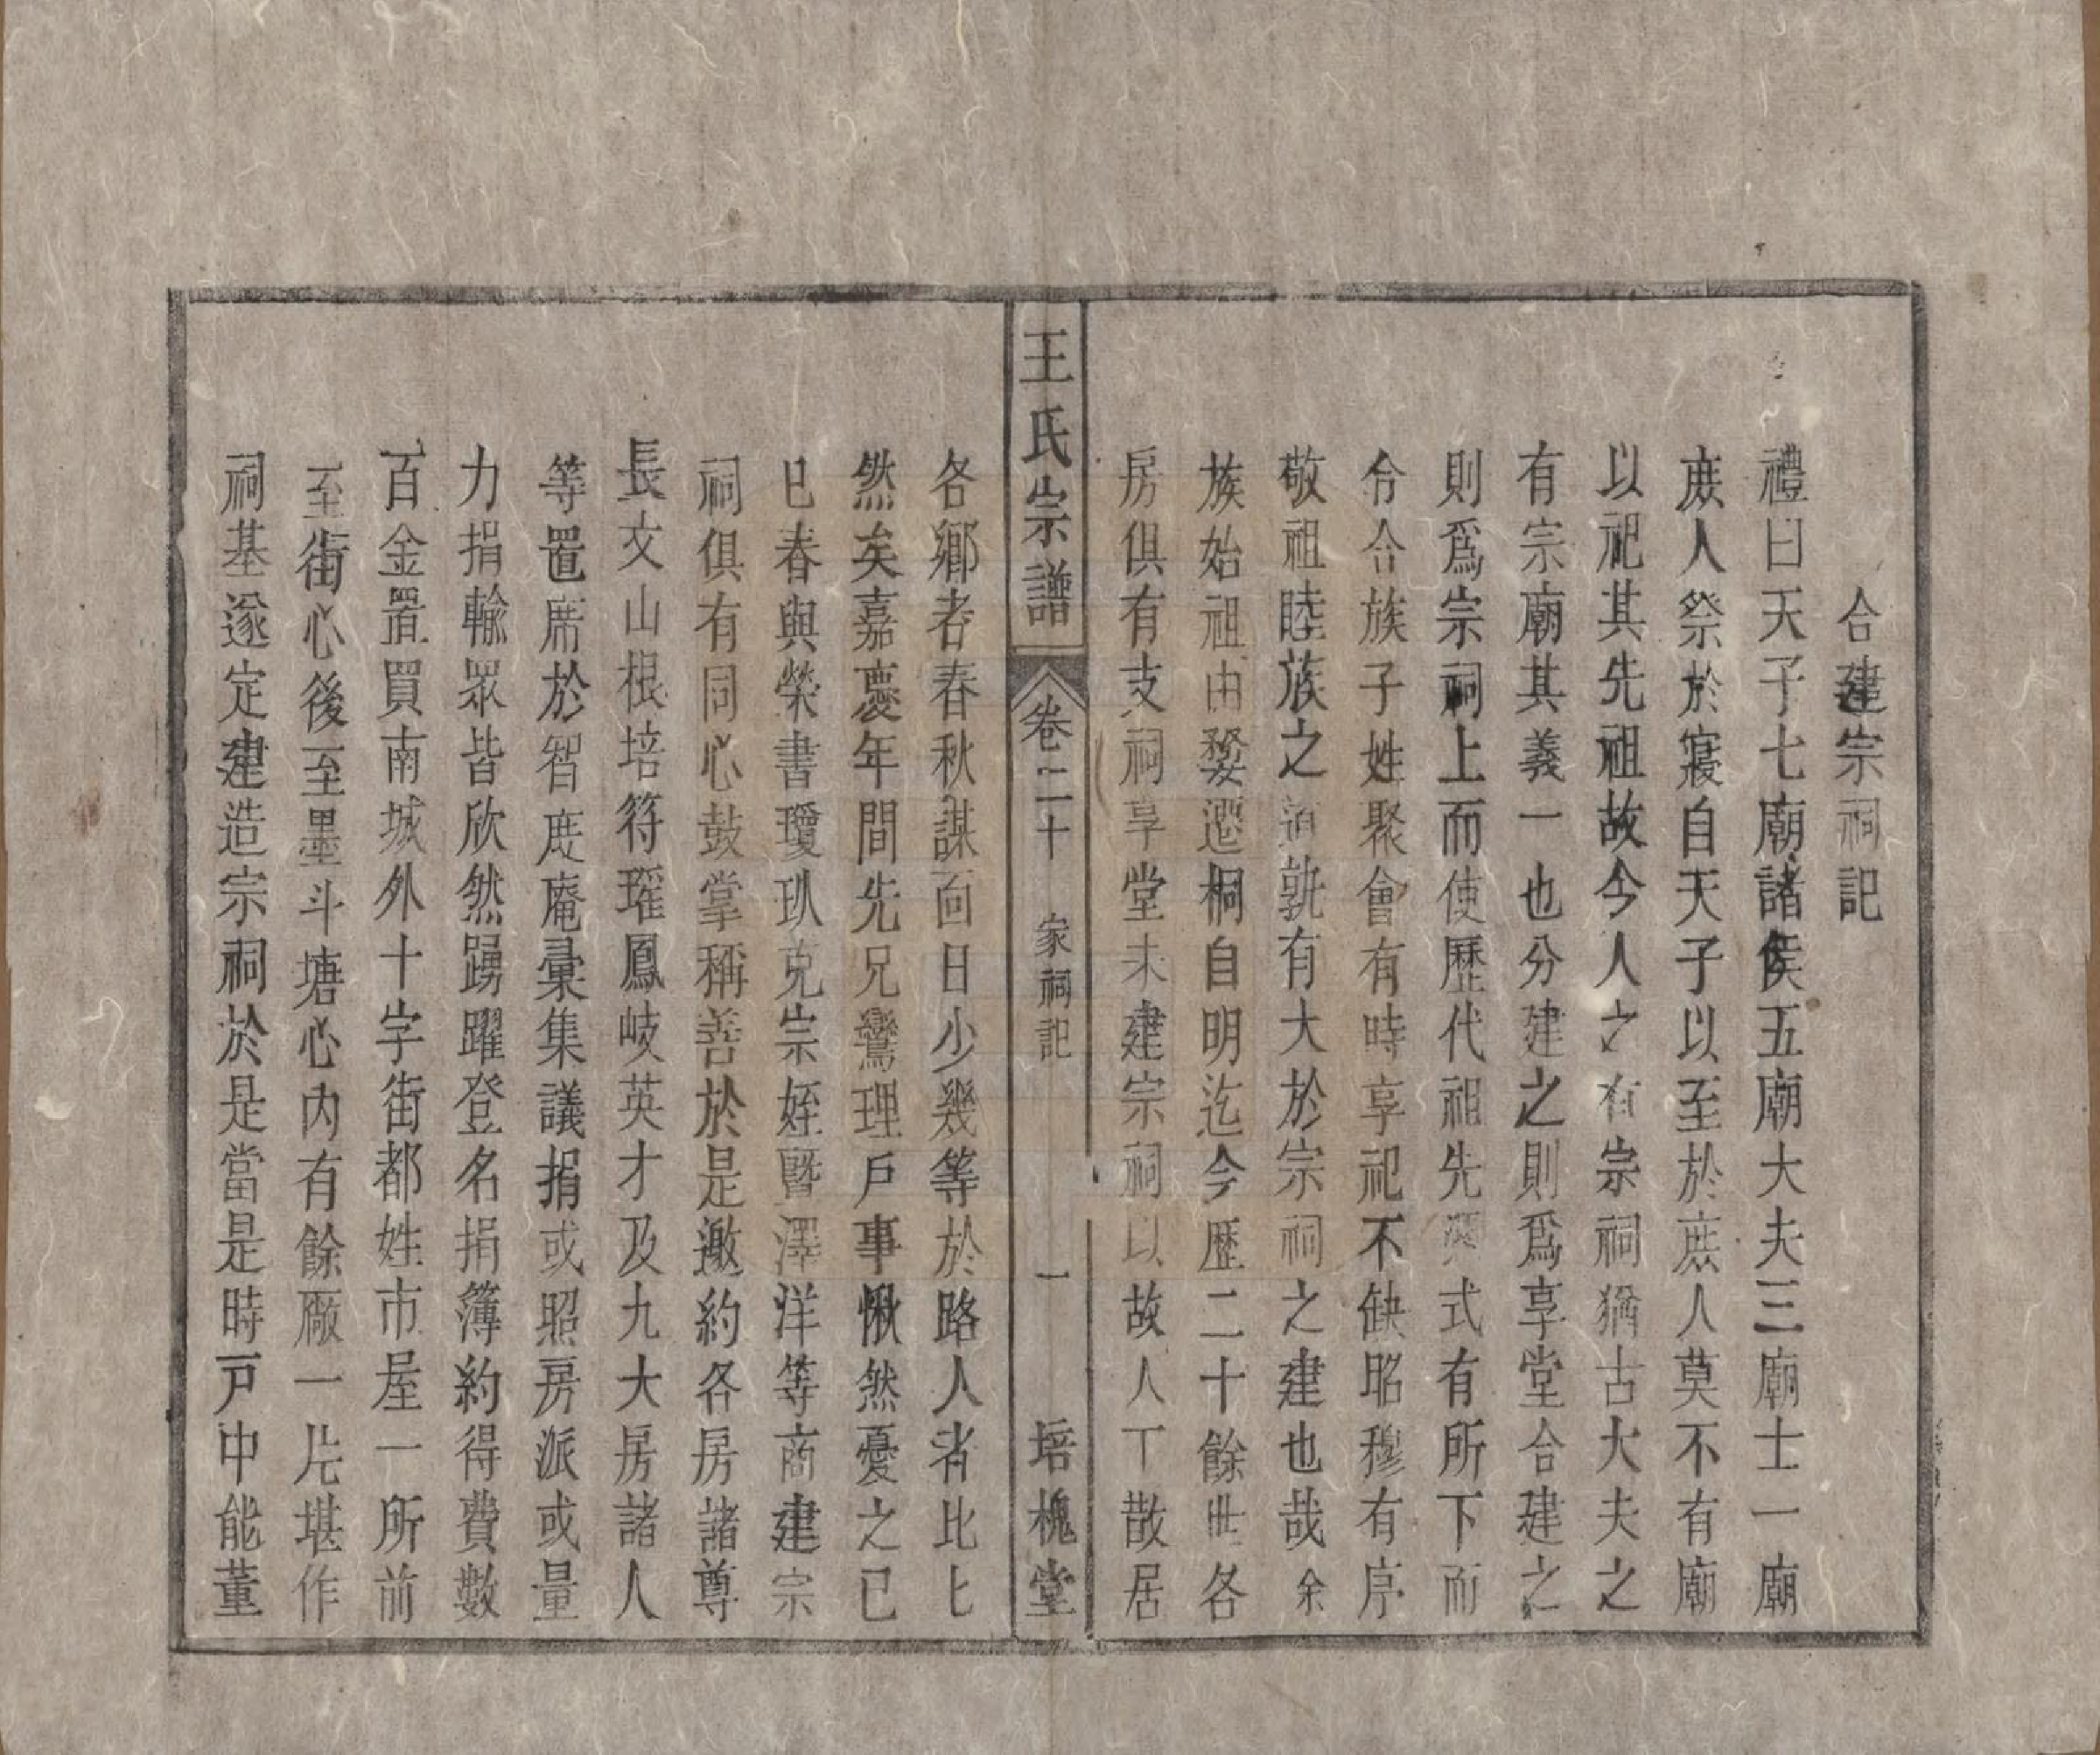 合建宗祠記
禮曰天子七廟諸侯五廟大夫三廟士一廟
庶人祭於寢自天子以至於庶人莫不有廟
以祀其先祖故今人之有宗祠猶古大夫之
有宗廟其義一也分建之則爲享堂合建之
則爲宗祠上而使歷代祖先憑式有所下而
令合族子姓聚會有時享祀不缺昭穆有序
敬祖睦族之道孰有大於宗祠之建也哉余
族始祖由婺遷桐自明迄今歷二十餘世各
房俱有支祠享堂未建宗祠以故人丁散居
王氏宗譜
卷二十
家祠記
一
培槐堂
各鄉者春秋謀面日少幾等於路人者比比
然矣嘉慶年間先兄鸞理戶事愀然憂之已
巳春與榮書瓊玐克宗姪暨澤洋等商建宗
祠俱有同心鼓掌稱善於是邀約各房諸尊
長文山根培符瑤鳳岐英才及九大房諸人
等置席於智度庵彙集議捐或照房派或量
力捐輸眾皆欣然踴躍登名捐簿約得費數
百金置買南城外十字街都姓市屋一所前
至街心後至墨斗塘心內有餘廠一片堪作
祠基遂定建造宗祠於是當是時戶中能董